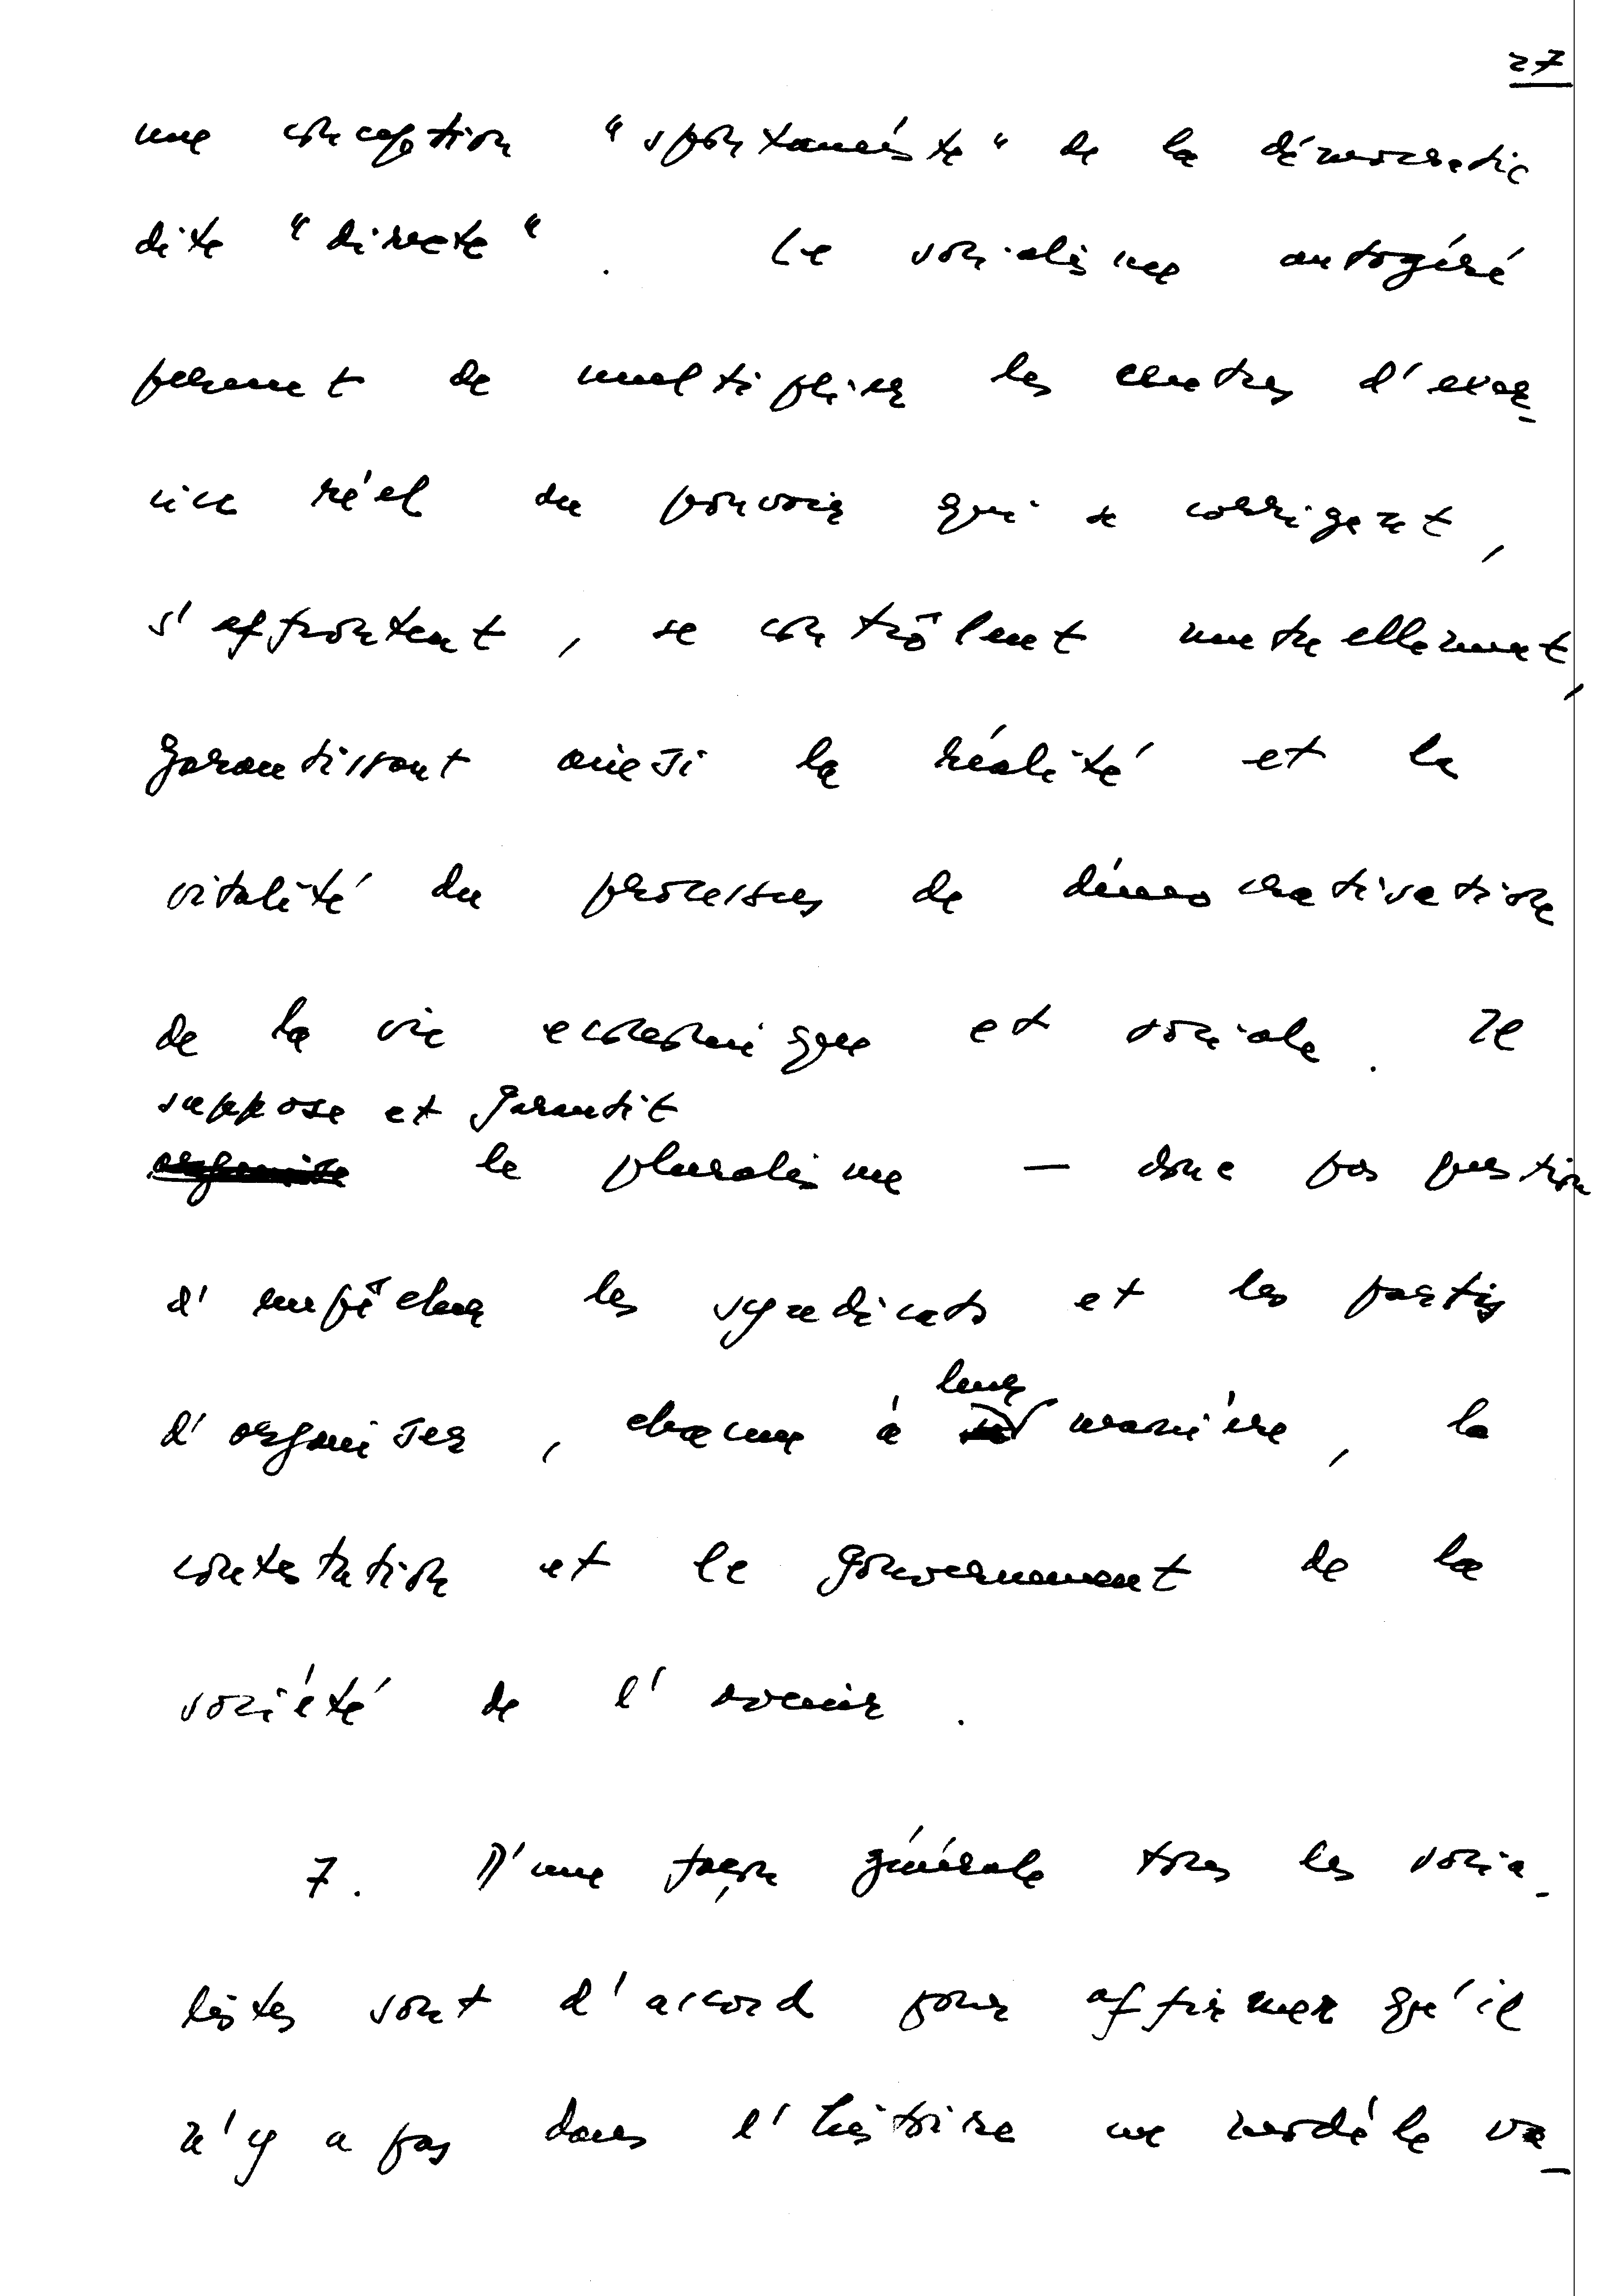 27
une conception "spontanéiste" de la démocratie
dite "directe". Le socialisme autogéré
permet de multiplier les centres d'exer-
cice réel du pouvoir qui se corrigent,
s'affrontent, se contrôlent mutuellement,
garantissant ainsi la réalité et la
vitalité du processus de démocratisation
de la vie economique et sociale. Il
suppose et garantit
organise le pluralisme — donc pas question
d'empêcher les syndicats et les partis
leur
d'organiser, chacun à manière, la
contestation et le gouvernement de la
société de l'avenir.
7. D'une façon générale tous les socia-
listes sont d'accord pour affirmer qu'il
n'y a pas dans l'histoire un modèle va-